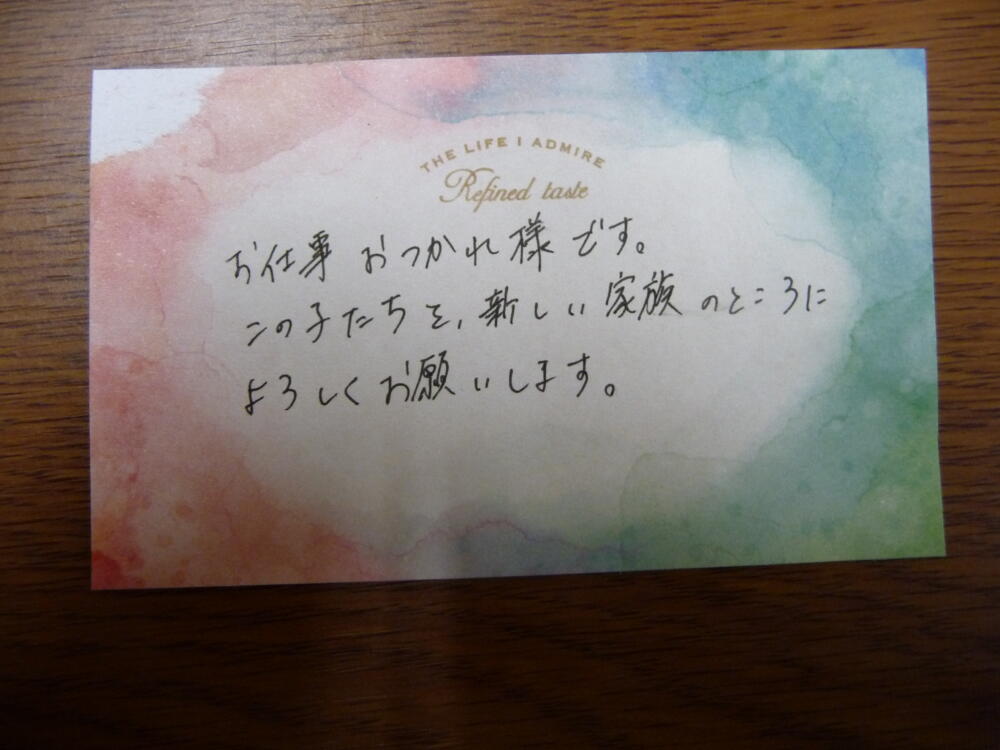 THE LIFE I ADMIRE
Refined taste
お仕事 おつかれ様です。
この子たちを、新しい家族のところに
よろしくお願いします。